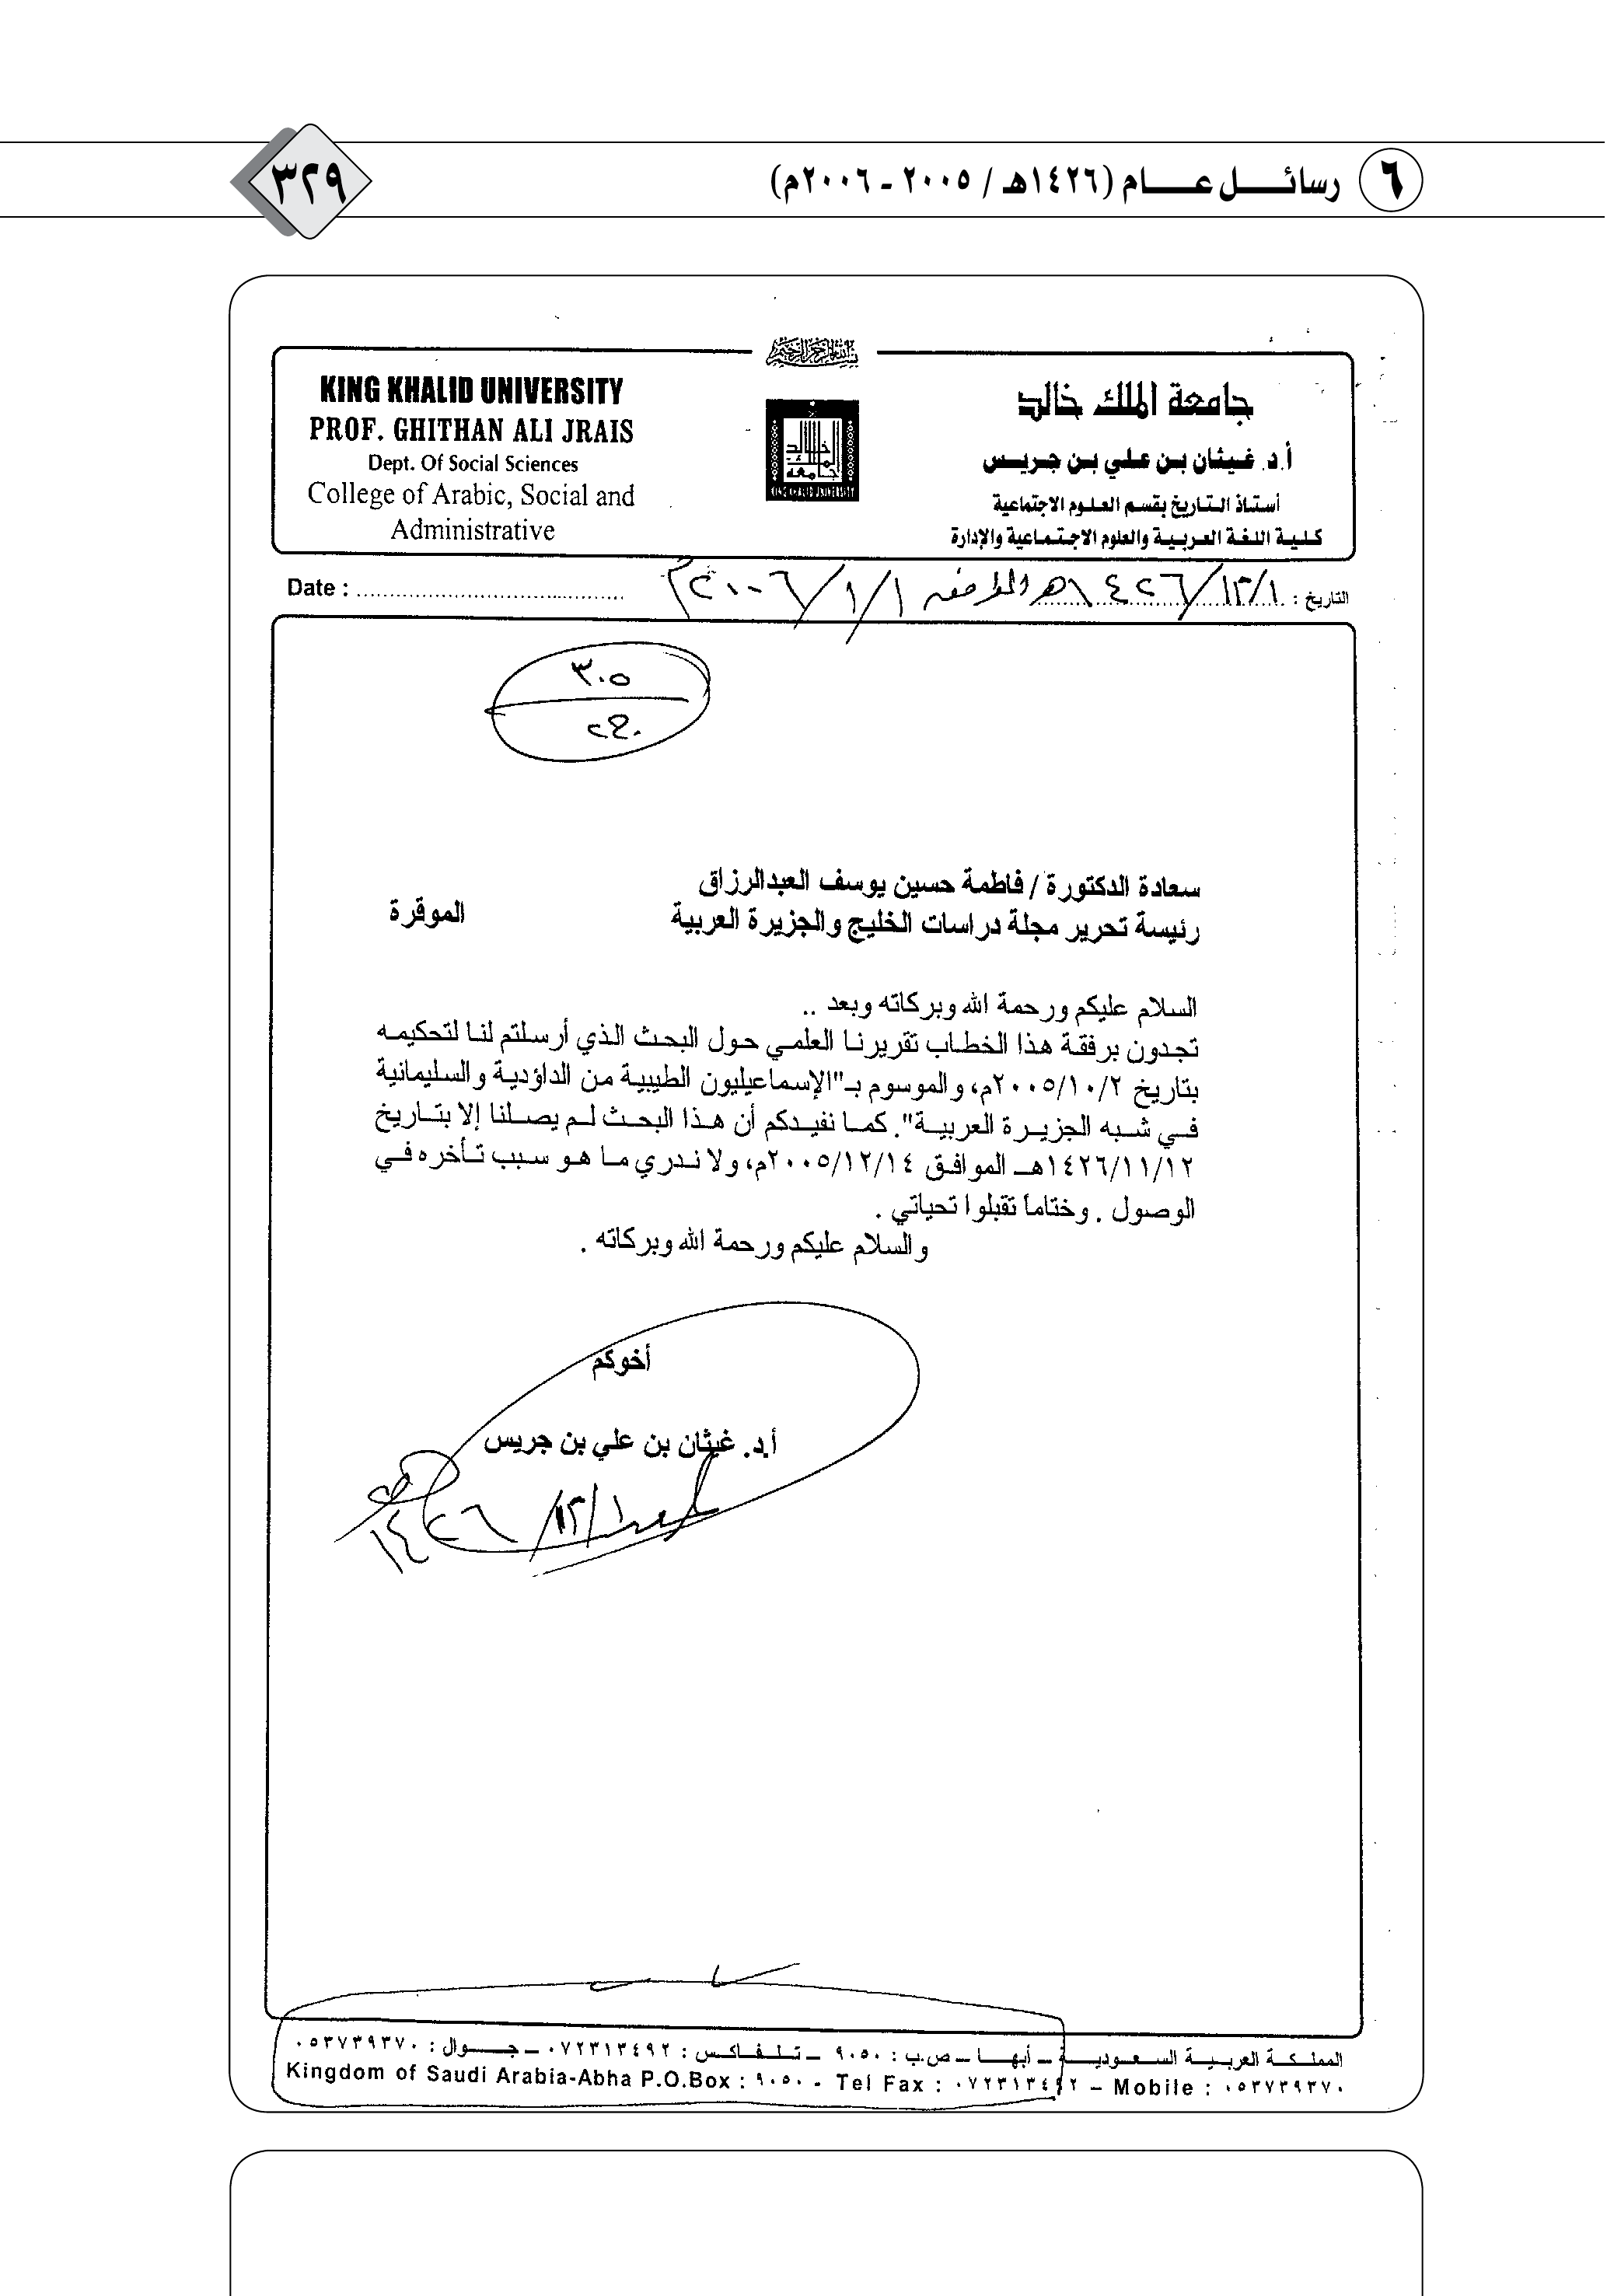 ٦ رسائل عام (١٤٢٦هـ / ٢٠٠٥ - ٢٠٠٦م)
٣٢٩
بسم الله الرحمن الرحيم
جامعة الملك خالد
أ.د. غيثان بن علي بن جريس
أستاذ التاريخ بقسم العلوم الاجتماعية
كلية اللغة العربية والعلوم الاجتماعية والإدارة
KING KHALID UNIVERSITY
PROF. GHITHAN ALI JRAIS
Dept. Of Social Sciences
College of Arabic, Social and
Administrative
KING KHALID UNIVERSITY
التاريخ : ١/١٢/١٤٢٦هـ الموافق ١/١/٢٠٠٦م
Date :
٣٠٥
سعادة الدكتورة / فاطمة حسين يوسف العبدالرزاق
رئيسة تحرير مجلة دراسات الخليج والجزيرة العربية الموقرة
السلام عليكم ورحمة الله وبركاته وبعد ..
تجدون برفقة هذا الخطاب تقريرنا العلمي حول البحث الذي أرسلتم لنا لتحكيمه
بتاريخ ٢/١٠/٢٠٠٥م، والموسوم بـ"الإسماعيليون الطيبية من الداؤدية والسليمانية
في شبه الجزيرة العربية". كما نفيدكم أن هذا البحث لم يصلنا إلا بتاريخ
١٢/١١/١٤٢٦هـ الموافق ١٤/١٢/٢٠٠٥م، ولا ندري ما هو سبب تأخره في
الوصول . وختاماً تقبلوا تحياتي .
والسلام عليكم ورحمة الله وبركاته .
أخوكم
أ.د. غيثان بن علي بن جريس
١/١٢/١٤٢٦هـ
المملكة العربية السعودية – أبها – ص.ب : ٩٠٥٠ – تلفاكس : ٠٧٢٣١٣٤٩٢ – جوال : ٠٥٣٧٣٩٣٧٠
Kingdom of Saudi Arabia-Abha P.O.Box : ٩٠٥٠ - Tel Fax : ٠٧٢٣١٣٤٩٢ – Mobile : ٠٥٣٧٣٩٣٧٠